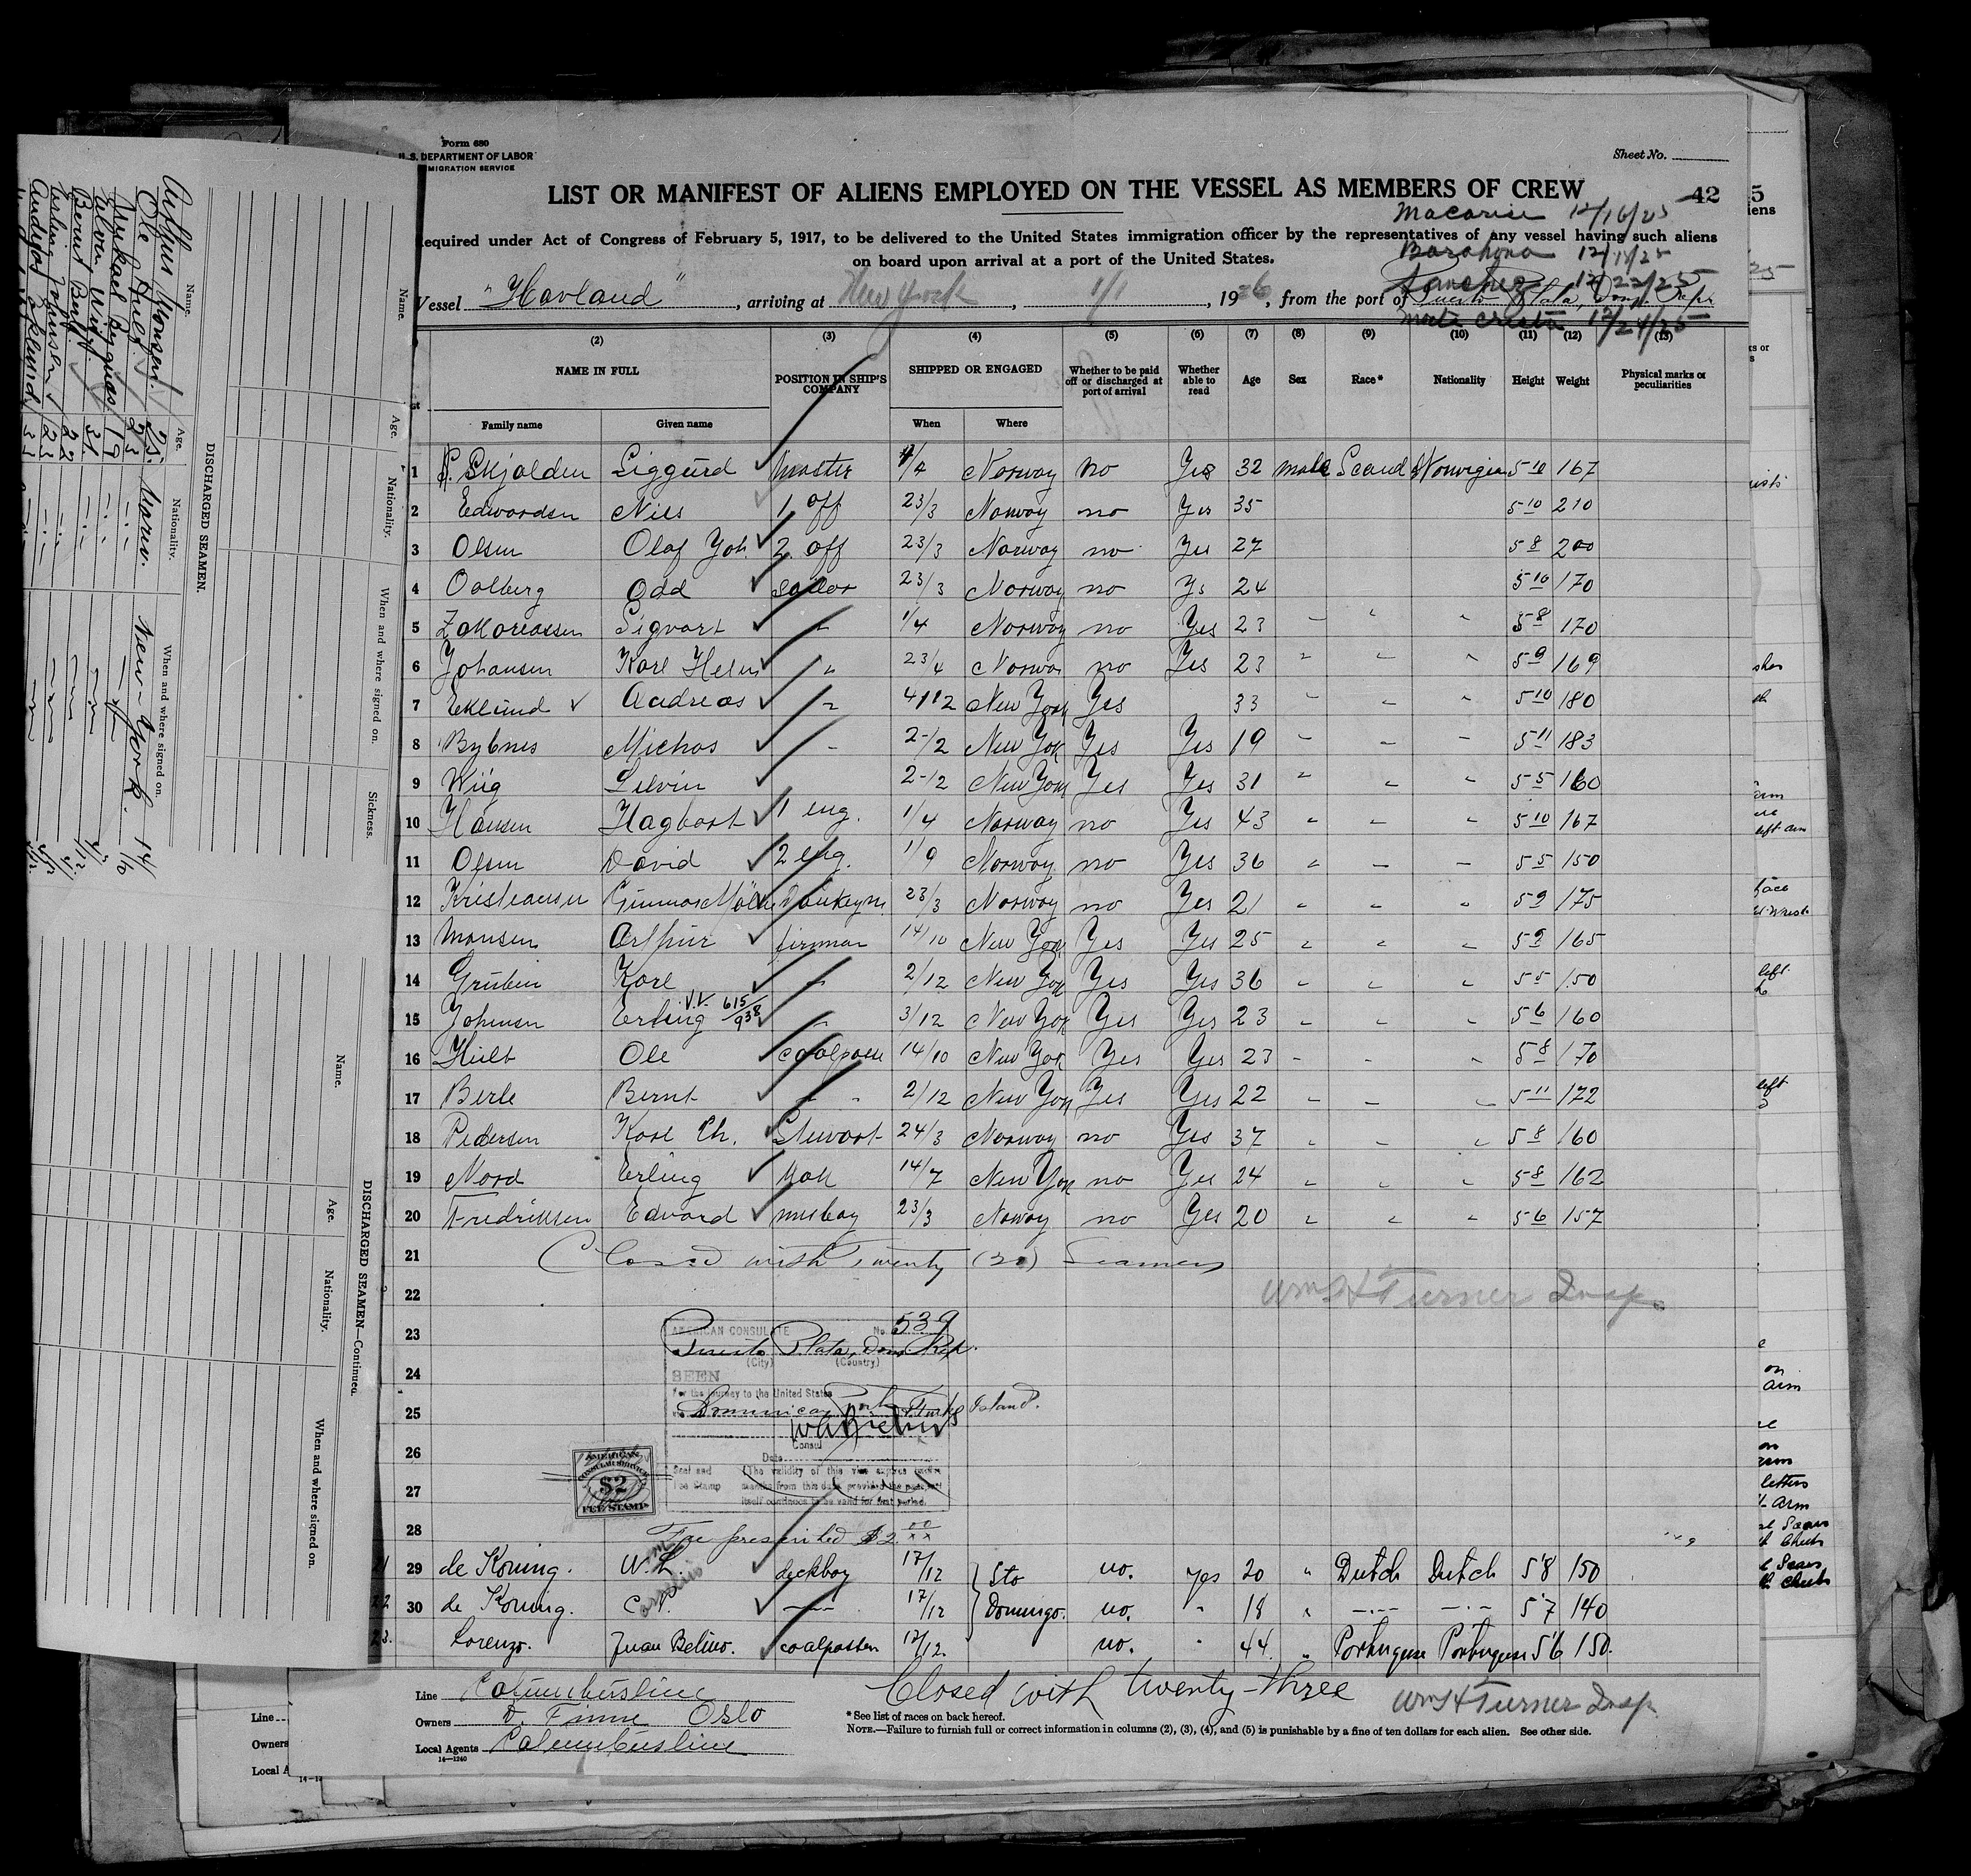 Form 680
U. S. DEPARTMENT OF LABOR
MIGRATION SERVICE
Sheet No.
LIST OR MANIFEST OF ALIENS EMPLOYED ON THE VESSEL AS MEMBERS OF CREW
42
12/16/25
equired under Act of Congress of February 5, 1917, to be delivered to the United States immigration officer by the representatives of any vessel having such aliens
Barahona 12/18/25
on board upon arrival at a port of the United States.
Sanchez 12/22/25
Vessel "Havland", arriving at New York, 1/1, 1926, from the port of Puerto Plata, Dom. Repr
Monte Cristo 12/24/25
(2) (3) (4) (5) (6) (7) (8) (9) (10) (11) (12) (13)
NAME IN FULL POSITION IN SHIP'S COMPANY SHIPPED OR ENGAGED Whether to be paid off or discharged at port of arrival Whether able to read Age Sex Race* Nationality Height Weight Physical marks or peculiarities
Family name Given name When Where
1 Skjolden Siggurd master 4/4 Norway no Yes 32 male Scand Norvigian 5 10 167
2 Edwardsen Nils 1 off 23/3 Norway no Yes 35 5 10 210
3 Olsen Olaf Joh. 2 off 23/3 Norway no Yes 27 5 8 200
4 Oalberg Odd sailor 23/3 Norway no Ys 24 5 10 170
5 Zakariassen Sigvart " 1/4 Norway no Yes 23 " " " 5 8 170
6 Johansen Karl Helm " 23/4 Norwa no Yes 23 " " " 5 9 169
7 Eklund Andreas " 4/12 New York Yes 33 " " " 5 10 180
8 Bybnes Michas " 2-/2 New Yok Yes Yes 19 " " " 5 11 183
9 Wiig Selvin 2-12 New York Yes Yes 31 " " " 5 5 160
10 Hansen Hagbart 1 eng. 1/4 Norway no Yes 43 " " " 5 10 167
11 Olsen David 2 eng. 1/9 Norway no Yes 36 " " " 5 5 150
12 Kristiansen Gunnar 23/3 Norway no Yes 21 " " " 5 9 175
13 Monsen Arthur firmman 14/10 New York Yes Yes 25 " " " 5 9 165
14 Gruben Karl " 2/12 New York Yes Yes 36 " " " 5 5 150
15 Johnsen Erling V.V. 615/938 " 3/12 New York Yes Yes 23 " " " 5 6 160
16 Hult Ole 14/10 New York Yes Yes 23 " " " 5 8 170
17 Berle Bernt " " 2/12 New York Yes Yes 22 " " " 5 11 172
18 Pedersen Karl Ch. Stewart 24/3 Norway no Yes 37 " " " 5 8 160
19 Nord Erling kok 14/7 New York no Yes 24 " " " 5 8 162
20 Fredriksen Edvard mesboy 23/3 Noway no Yes 20 " " " 5 6 157
21 Closed with Twenty (20) Seamen
22 Wm H Turner Insp.
23 AMERICAN CONSULATE No. 539
Puerto Plata, Dom. Rep.
(City) (Country)
24 SEEN
For the journey to the United States
25 Dominican Ports Turks Island.
Consul
26 Date
27 Seal and Fee Stamp (The validity of this visa expires twelve months from this date provided the passport itself continues to be valid for that period.
AMERICAN CONSULAR SERVICE $2 FEE STAMP
28 Fee prescribed $2 00/xx
21 29 de Koning. W. L. deckboy 17/12 Sto no. yes 20 " Dutch Dutch 5'8 150
22 30 de Koning. C. 17/12 Domingo. no. " 18 " 5'7 140
23. Lorenzo. Juan Belino. coalpasser 12/12 no. " 44. " Portuguese Portuguese 5'6 150.
Line Columbusline
Closed with twenty-three Wm H Turner Insp.
Owners D. Finne Oslo
Local Agents Columbusline
14—1240
*See list of races on back hereof.
NOTE.—Failure to furnish full or correct information in columns (2), (3), (4), and (5) is punishable by a fine of ten dollars for each alien. See other side.
DISCHARGED SEAMEN.
Name. Age. Nationality. When and where signed on.
Arthur Monsen. 25. Norw. New-York. 14/10
Ole Hult. 23
Mikael Bygnes 19
Elvin Wiig. 31
Bernt Berle 22
Erling Johnsen 23
Andreas Eklund 33
Name. Age. Nationality. When and where signed on. Sickness.
DISCHARGED SEAMEN—Continued.
Name. Age. Nationality. When and where signed on.
Line
Owners
Local A